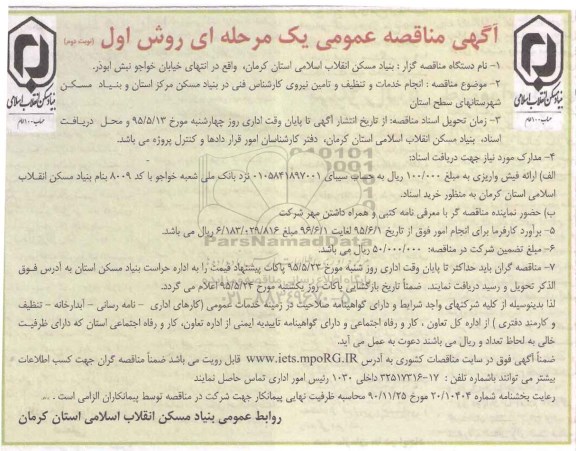 آگهی مناقصه عمومی یک مرحله ای روش اول (نوبت دوم)
بنیاد مسکن انقلاب اسلامی
حساب ۱۰۰ امام
بنیاد مسکن انقلاب اسلامی
حساب ۱۰۰ امام
۱- نام دستگاه مناقصه گزار : بنیاد مسکن انقلاب اسلامی استان کرمان، واقع در انتهای خیابان خواجو نبش ابوذر.
۲- موضوع مناقصه : انجام خدمات و تنظیف و تامین نیروی کارشناس فنی در بنیاد مسکن مرکز استان و بنیاد مسکن
شهرستانهای سطح استان
۳- زمان تحویل اسناد مناقصه: از تاریخ انتشار آگهی تا پایان وقت اداری روز چهارشنبه مورخ ۹۵/۵/۱۳ و محل دریافت
اسناد، بنیاد مسکن انقلاب اسلامی استان کرمان، دفتر کارشناسان امور قرار دادها و کنترل پروژه می باشد.
۴- مدارک مورد نیاز جهت دریافت اسناد:
الف) ارائه فیش واریزی به مبلغ ۱۰۰/۰۰۰ ریال به حساب سیبای ۰۱۰۵۸۴۱۸۹۷۰۰۱ نزد بانک ملی شعبه خواجو با کد ۸۰۰۹ بنام بنیاد مسکن انقلاب
اسلامی استان کرمان به منظور خرید اسناد.
ب) حضور نماینده مناقصه گر با معرفی نامه کتبی و همراه داشتن مهر شرکت
۵- برآورد کارفرما برای انجام امور فوق از تاریخ ۹۵/۶/۱ لغایت ۹۶/۶/۱ مبلغ ۶/۱۸۳/۰۲۹/۸۱۶ ریال می باشد.
۶- مبلغ تضمین شرکت در مناقصه: ۵۰/۰۰۰/۰۰۰ ریال می باشد.
۷- مناقصه گران باید حداکثر تا پایان وقت اداری روز شنبه مورخ ۹۵/۵/۲۳ پاکات پیشنهاد قیمت را به اداره حراست بنیاد مسکن استان به آدرس فوق
الذکر تحویل و رسید دریافت نمایند. ضمناً تاریخ بازگشایی پاکات روز یکشنبه مورخ ۹۵/۵/۲۴ اعلام می گردد.
لذا بدینوسیله از کلیه شرکتهای واجد شرایط و دارای گواهینامه صلاحیت در زمینه خدمات عمومی (کارهای اداری - نامه رسانی - آبدارخانه - تنظیف
و کارمند دفتری ) از اداره کل تعاون ، کار و رفاه اجتماعی و دارای گواهینامه تاییدیه ایمنی از اداره تعاون، کار و رفاه اجتماعی استان که دارای ظرفیت
خالی به لحاظ تعداد و ریال می باشند دعوت به عمل می آید.
ضمناً آگهی فوق در سایت مناقصات کشوری به آدرس www.iets.mpoRG.IR قابل رویت می باشد ضمناً مناقصه گران جهت کسب اطلاعات
بیشتر می توانند باشماره تلفن : ۱۷-۳۲۵۱۷۳۱۶ داخلی ۱۰۳۰ رئیس امور اداری تماس حاصل نمایند
رعایت بخشنامه شماره ۲۰/۱۰۴۰۴ مورخ ۹۰/۱۱/۲۵ محاسبه ظرفیت نهایی پیمانکار جهت شرکت در مناقصه توسط پیمانکاران الزامی است ...
روابط عمومی بنیاد مسکن انقلاب اسلامی استان کرمان
ParsNamadData